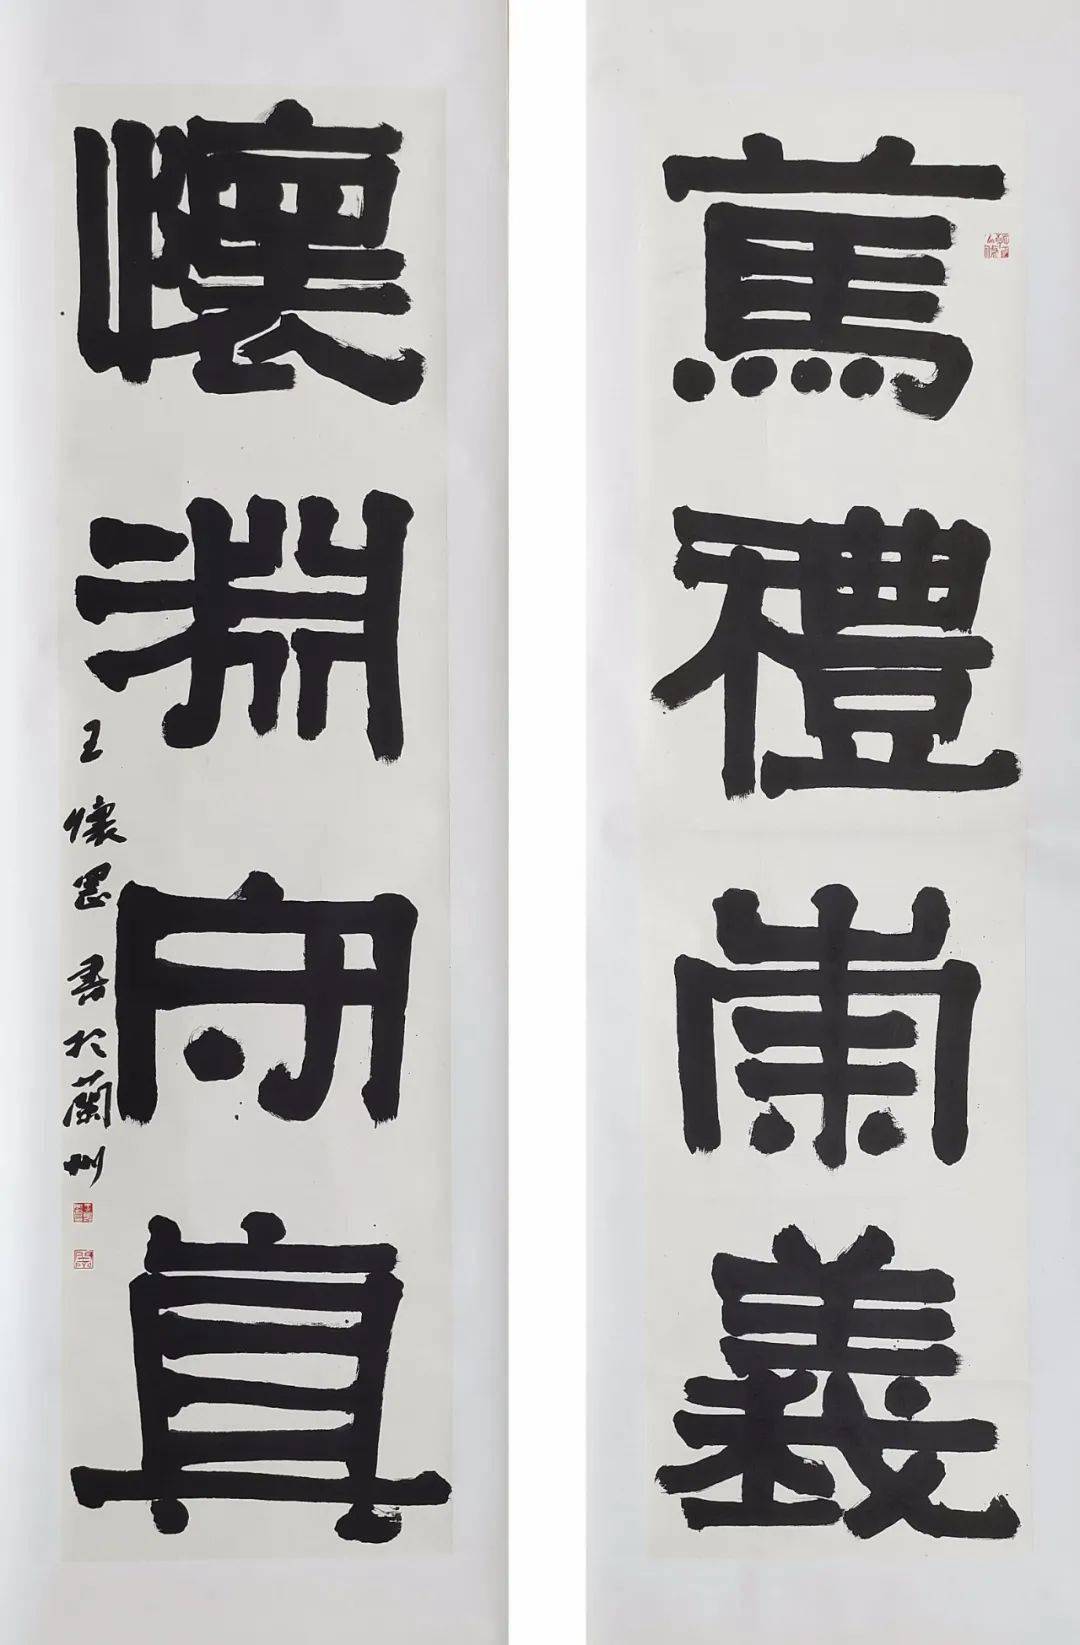 篤禮崇義
懷淵守真
王懷書於蘭州